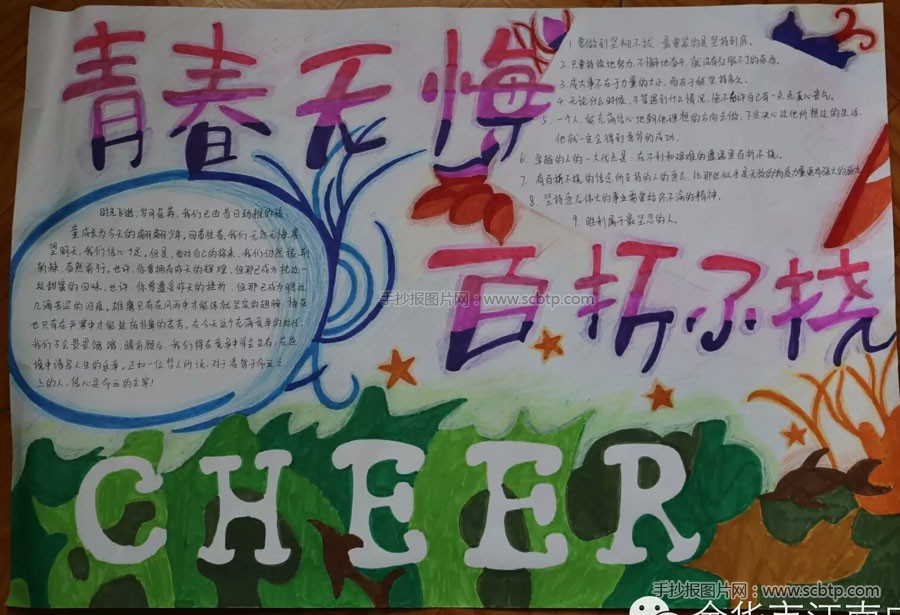 青春无悔
1. 要做到坚韧不拔，最要紧的是坚持到底。
2. 只要持续地努力，不懈地奋斗，就没有征服不了的东西。
3. 成大事不在于力量的大小，而在于能坚持多久。
4. 无论什么时候，不管遇到什么情况，绝不允许自己有一点点灰心丧气。
5. 一个人，能充满信心地朝他理想的方向去做，下定决心过他所想过的生活，
他就一定会得到意外的成功。
6. 卓越的人的一大优点是，在不利和艰难的遭遇里百折不挠。
7. 有百折不挠的信念所支持的人的意志，比那些似乎是无敌的物质力量更有强大的
8. 坚持意志伟大的事业需要始终不渝的精神。
9. 胜利属于最坚忍的人。
百折不挠
时光飞逝，岁月荏苒，我们已由昔日幼稚的孩
童成长为今天的翩翩少年。回首往昔，我们无怨无悔，展
望明天，我们信心十足，但是，面对自己的将来，我们仍然
奋然前行。也许，你曾拥有昨天的辉煌，但那已成为
甜蜜的回味。也许，你曾遭受昨天的挫折，但那已成为腮边
几滴苦涩的泪痕。雄鹰只有在风雨中才能练就坚实的翅膀，梅花
也只有在严寒中才能绽放。在今天这个充满竞争的时代，
我们不会
境中谱写人生的乐章。正如一位哲人所说，对于凌驾于命运之
上的人，信心是命运的主宰！
手抄报图片网：www.scbtp.com
CHEER
手抄报图片网：www.scbtp.com
金华市江南